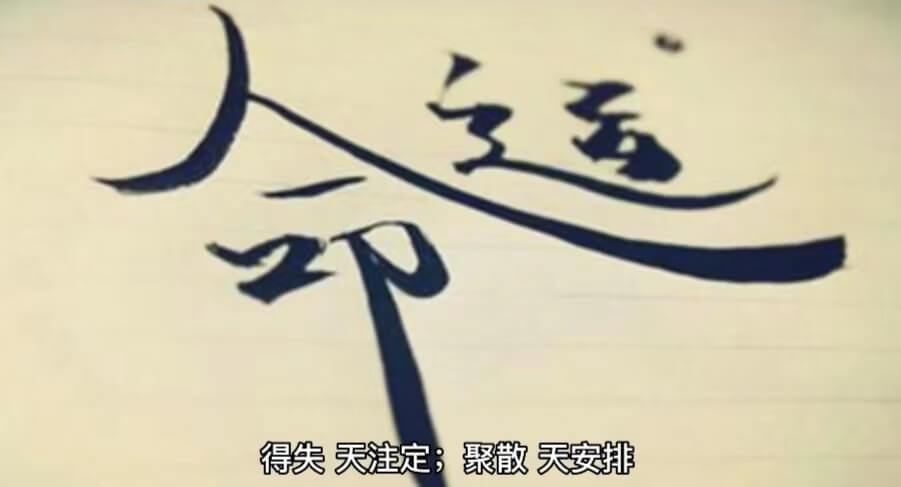 命运
得失 天注定；聚散 天安排